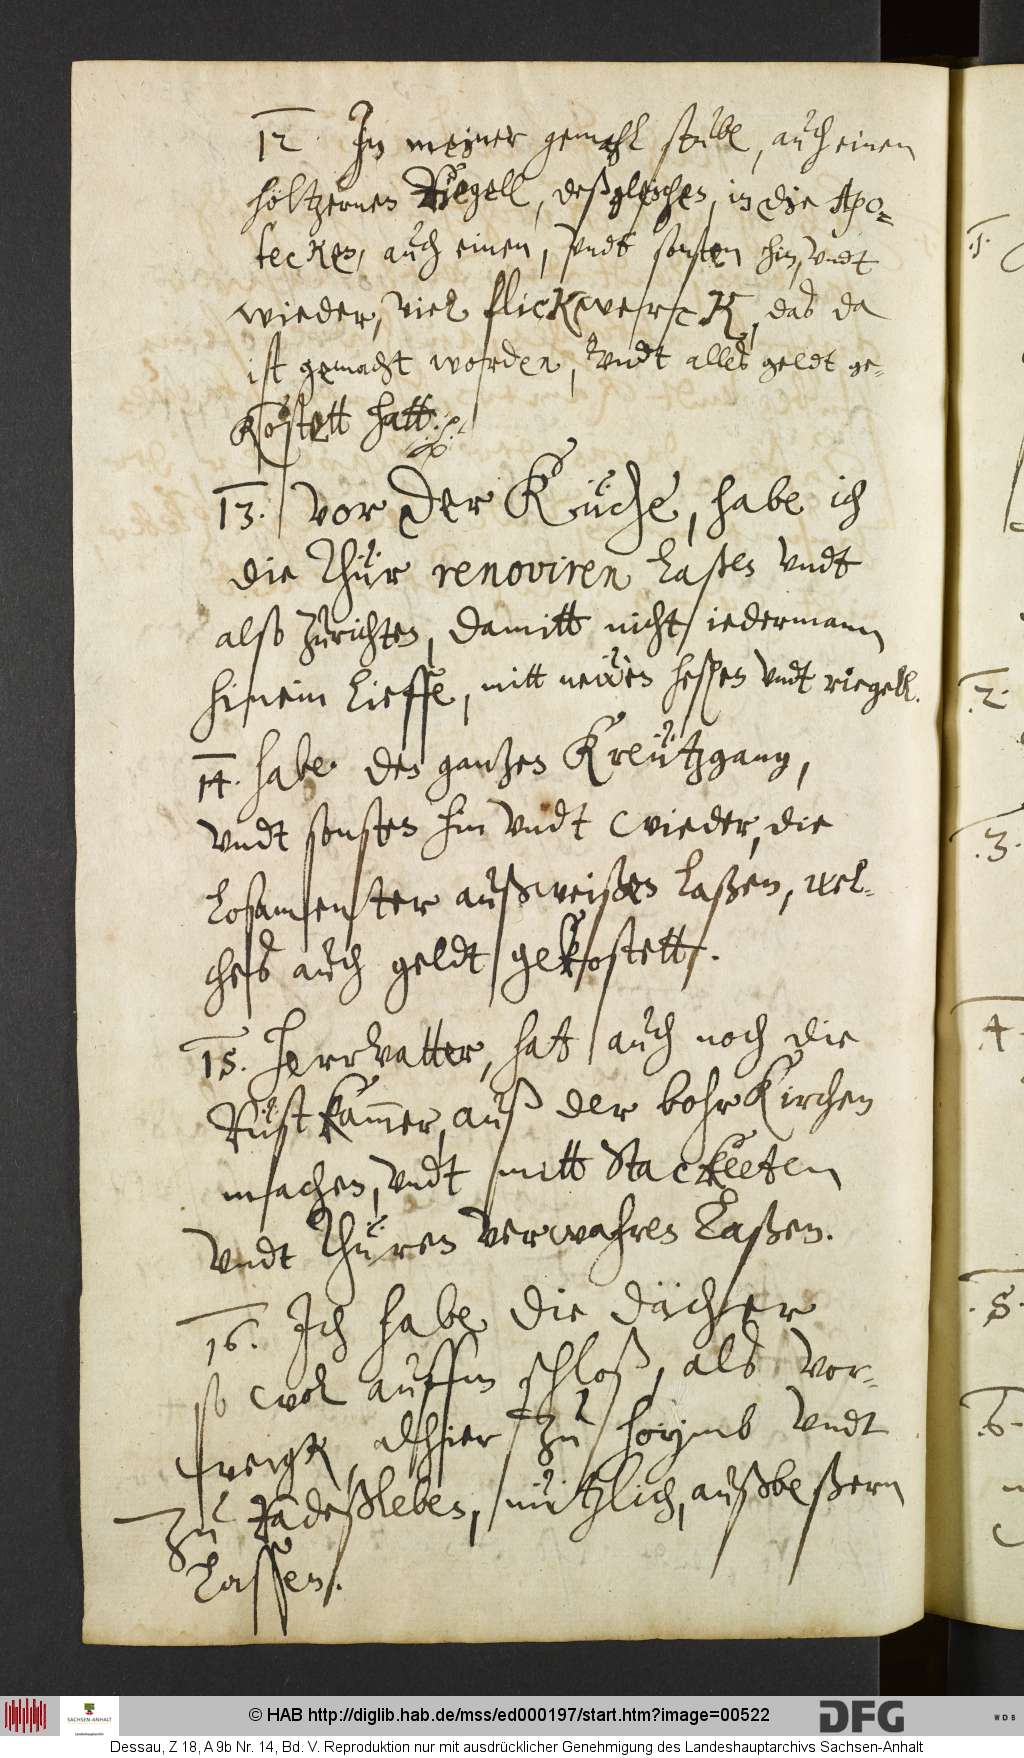 12. In meiner gemahl stube, auch einen
höltzernen Riegell, deßgleichen, in die Apo-
tecken, auch einen, vndt sonsten hin, vndt
wieder, viel flickwerck, das da
ist gemacht worden, vndt alles geldt ge-
kostett hatt.
13. Vor der Küche, habe ich
die Thür renoviren laßen vndt
also zurichten, damitt nicht iedermann
hinein lieffe, mitt newen hespen vndt riegell.
14. habe den gantzen Kreützgang,
vndt sonsten hin vndt wieder, die
losamenter außweißen laßen, wel-
ches auch geldt gekostett.
15. Herrvatter, hatt auch noch die
Rüstkammer, auß der bohrkirchen
machen, vndt mitt Stacketen
vndt Thüren verwahren laßen.
16. Ich habe die dächer
so wol auffm schloß, als vor-
wergk, alhier zu hoymb vndt
zu Radeßleben, nützlich, außbeßern
lassen.
© HAB http://diglib.hab.de/mss/ed000197/start.htm?image=00522
SACHSEN-ANHALT
DFG
WDB
Dessau, Z 18, A 9b Nr. 14, Bd. V. Reproduktion nur mit ausdrücklicher Genehmigung des Landeshauptarchivs Sachsen-Anhalt
1.
2.
3.
4.
5.
6.